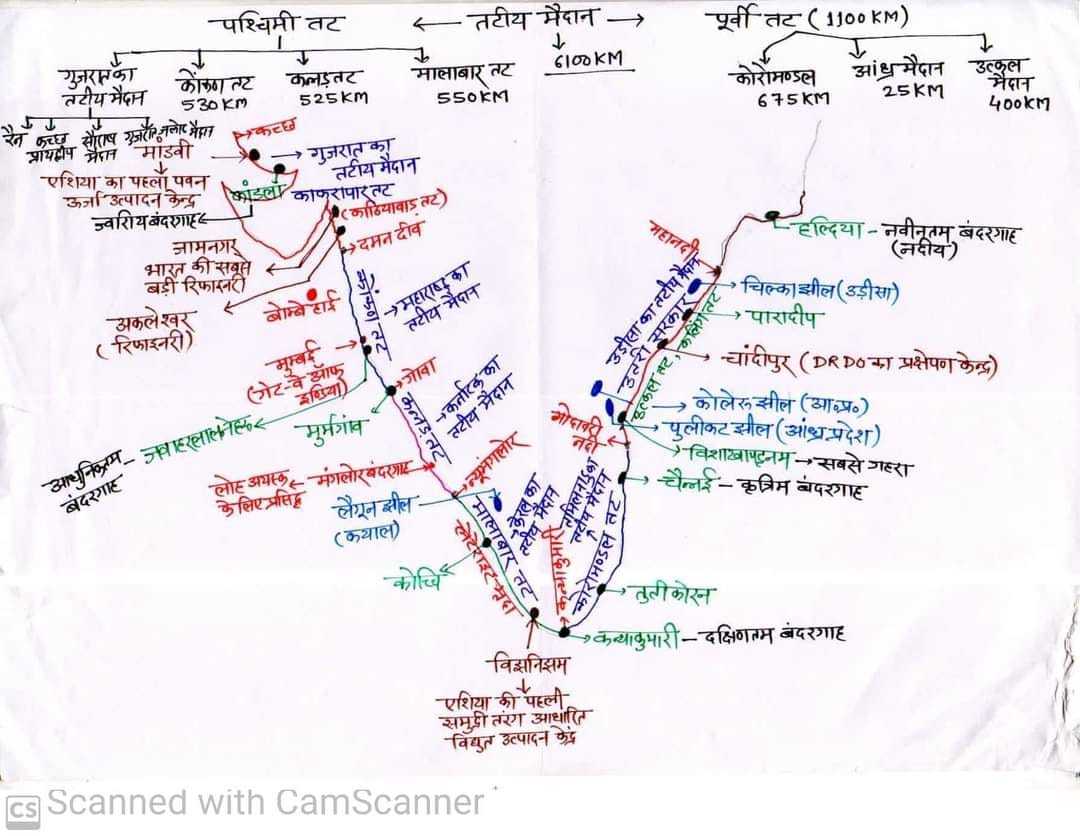 पश्चिमी तट ← तटीय मैदान → पूर्वी तट (1100 KM)
6100 KM
गुजरात का
तटीय मैदान
कोंकण तट
530 KM
कन्नड़ तट
525 KM
मालाबार तट
550 KM
कोरोमण्डल
675 KM
आंध्र मैदान
25 KM
उत्कल
मैदान
400 KM
रैन
कच्छ
प्रायद्वीप
मैदान
कच्छ
मांडवी
एशिया का पहला पवन
ऊर्जा उत्पादन केन्द्र
गुजरात का
तटीय मैदान
कांडला
ज्वारीय बंदरगाह
काकरापार तट
(काठियावाड़ तट)
जामनगर
भारत की सबसे
बड़ी रिफाइनरी
दमन दीव
अकलेश्वर
(रिफाइनरी)
बोम्बे हाई
कोंकण तट
महाराष्ट्र का
तटीय मैदान
मुम्बई
(गेट-वे ऑफ
इण्डिया)
जवाहरलाल नेहरू
आधुनिकतम
बंदरगाह
गोवा
मुर्मगांव
कन्नड़ तट
कर्नाटक का
तटीय मैदान
लौह अयस्क
के लिए प्रसिद्ध
मंगलोर बंदरगाह
न्यू मंगलोर
लैगून झील
(कयाल)
मालाबार तट
केरल का
तटीय मैदान
लैटेराइट-मृदा
कोच्चि
विझनिझम
एशिया की पहली
समुद्री तरंग आधारित
विद्युत उत्पादन केंद्र
कन्याकुमारी
कन्याकुमारी – दक्षिणतम बंदरगाह
तुतीकोरन
कोरोमण्डल तट
तमिलनाडु का
तटीय मैदान
चैन्नई – कृत्रिम बंदरगाह
विशाखापट्टनम → सबसे गहरा
पुलीकट झील (आंध्र प्रदेश)
कोलेरु झील (आ.प्र.)
गोदावरी
नदी
चांदीपुर (DRDO का प्रक्षेपण केन्द्र)
पारादीप
चिल्का झील (उड़ीसा)
महानदी
उड़ीसा का तटीय मैदान
उत्तरी सरकार
उत्कल तट, कलिंग तट
हल्दिया – नवीनतम बंदरगाह
(नदीय)
CS Scanned with CamScanner